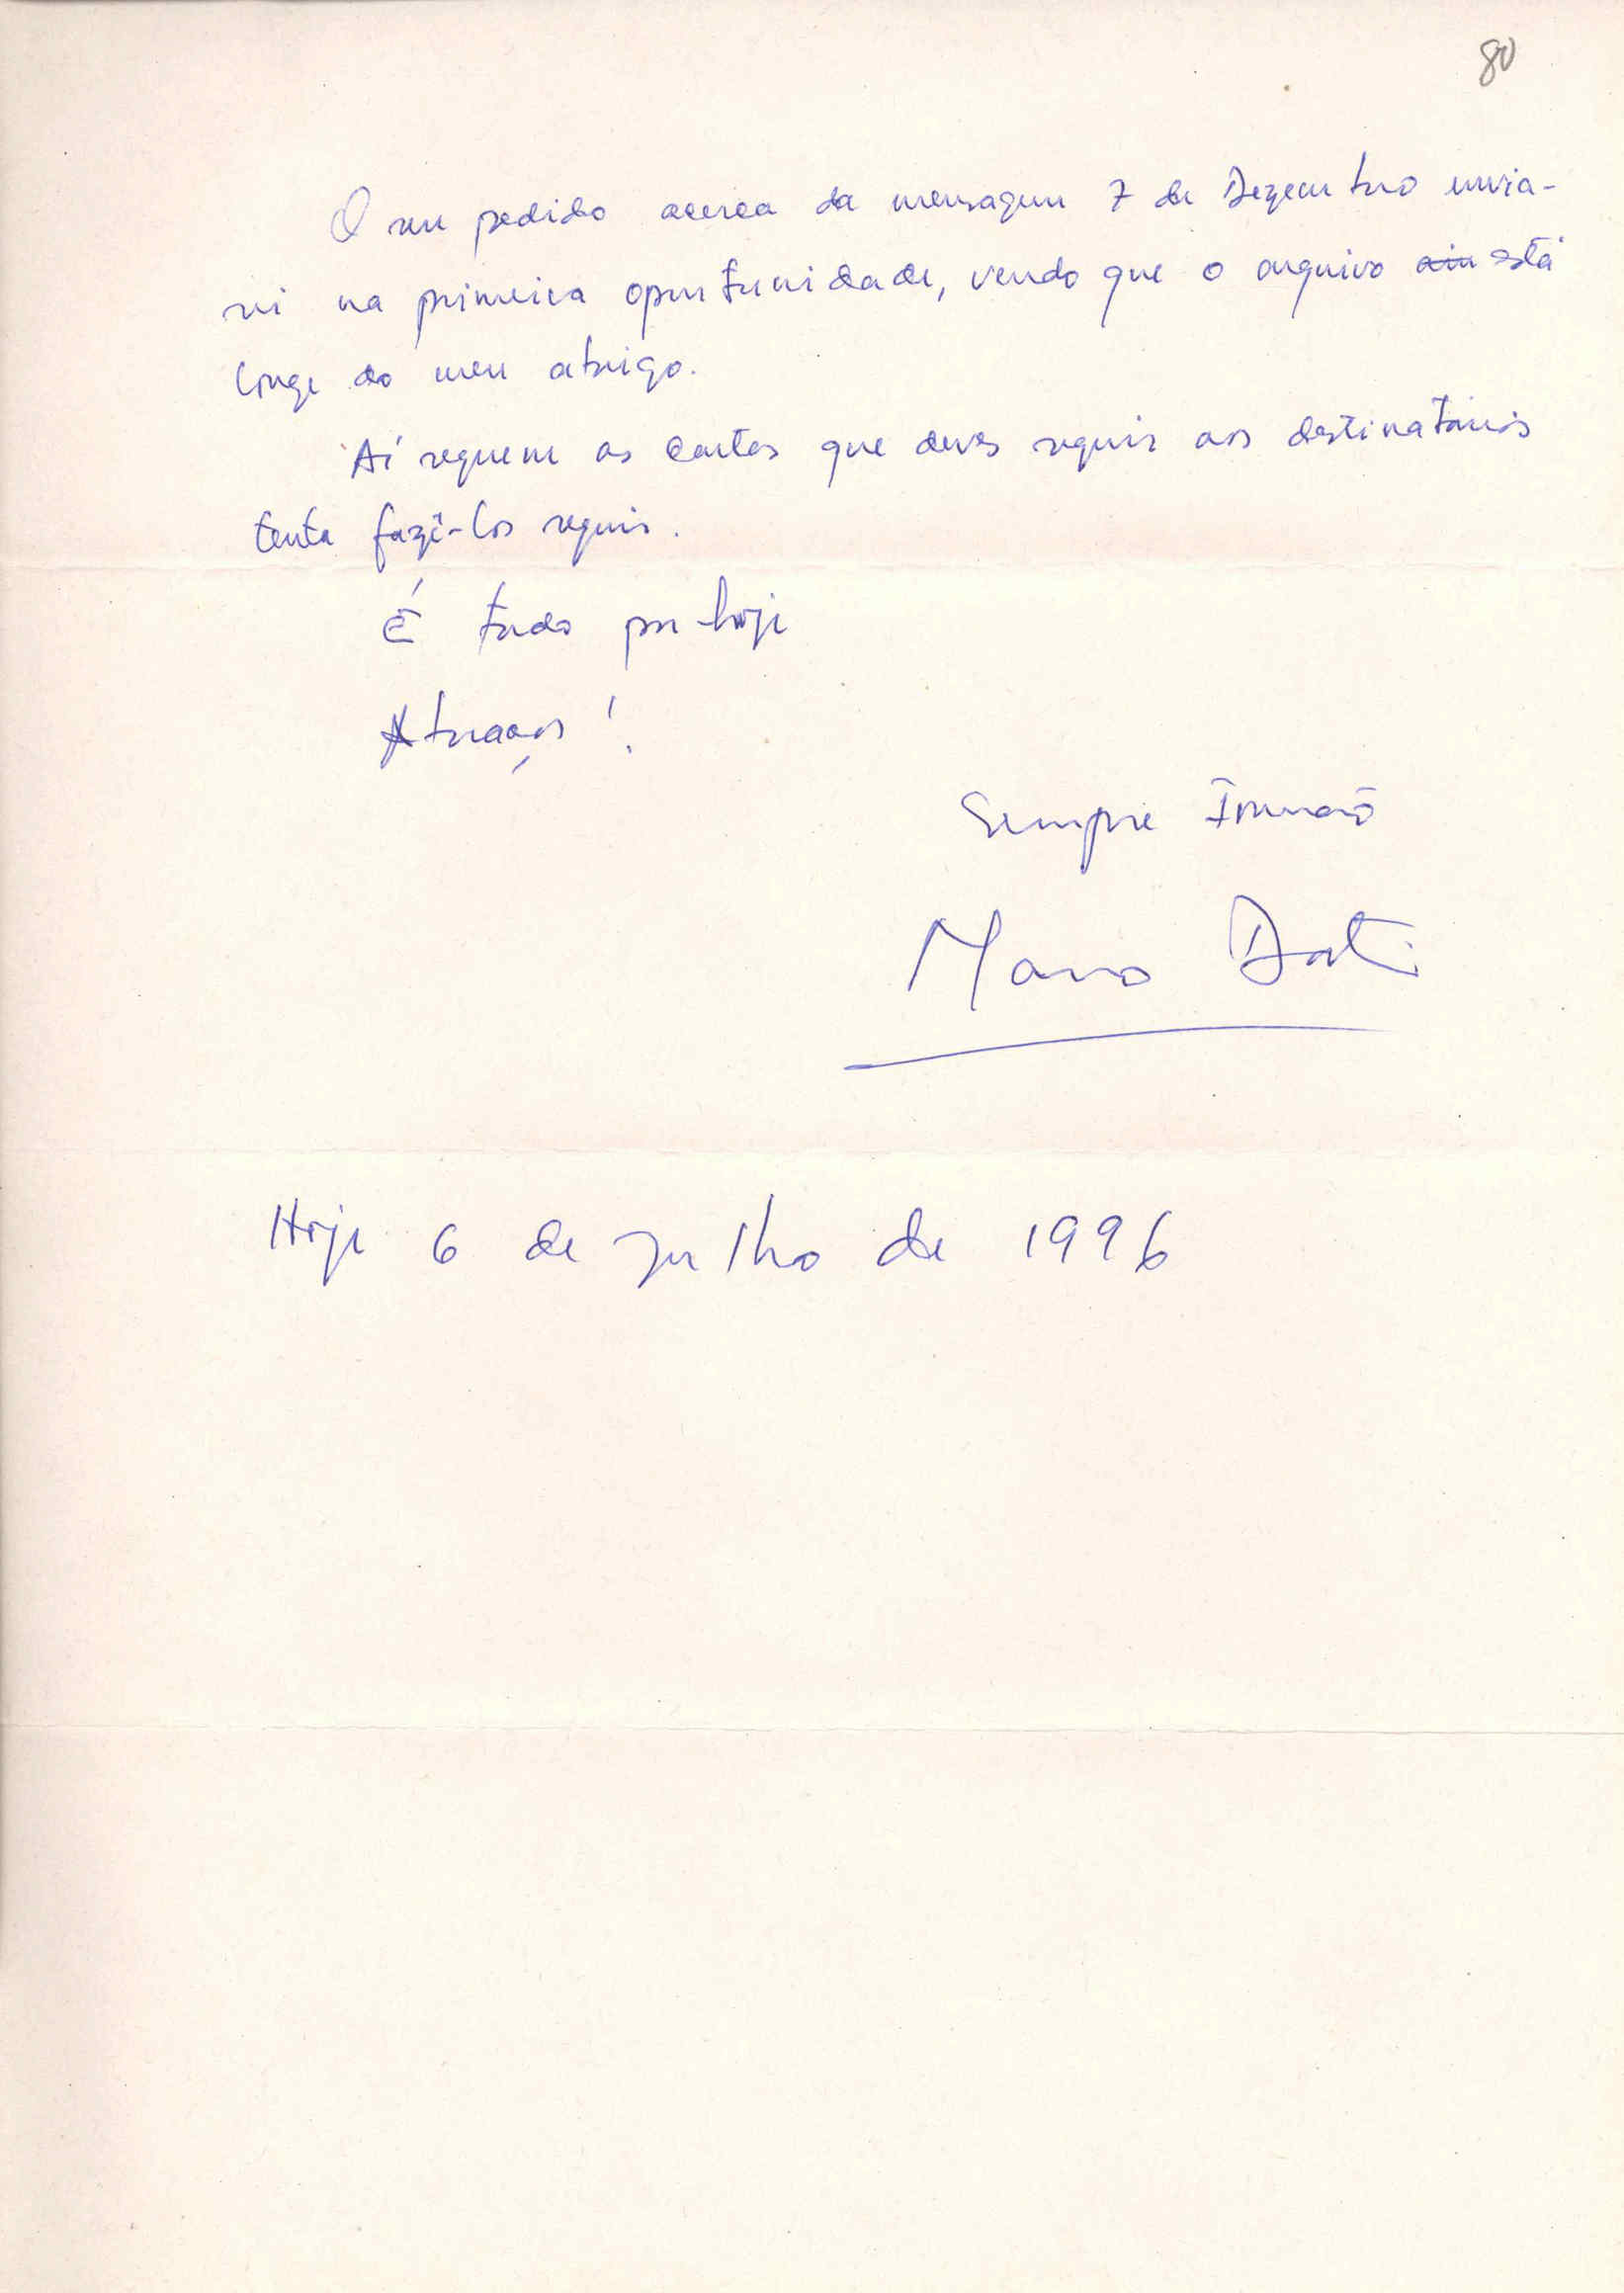 80
O seu pedido acerca da mensagem 7 de Dezembro envia-
rei na primeira oportunidade, vendo que o arquivo ain está
longe do meu abrigo.
Aí seguem as cartas que deves seguir aos destinatários
tenta fazê-los seguir.
É tudo por hoje
Abraços!
Sempre Irmão
Mano Dati
Hoje 6 de Julho de 1996